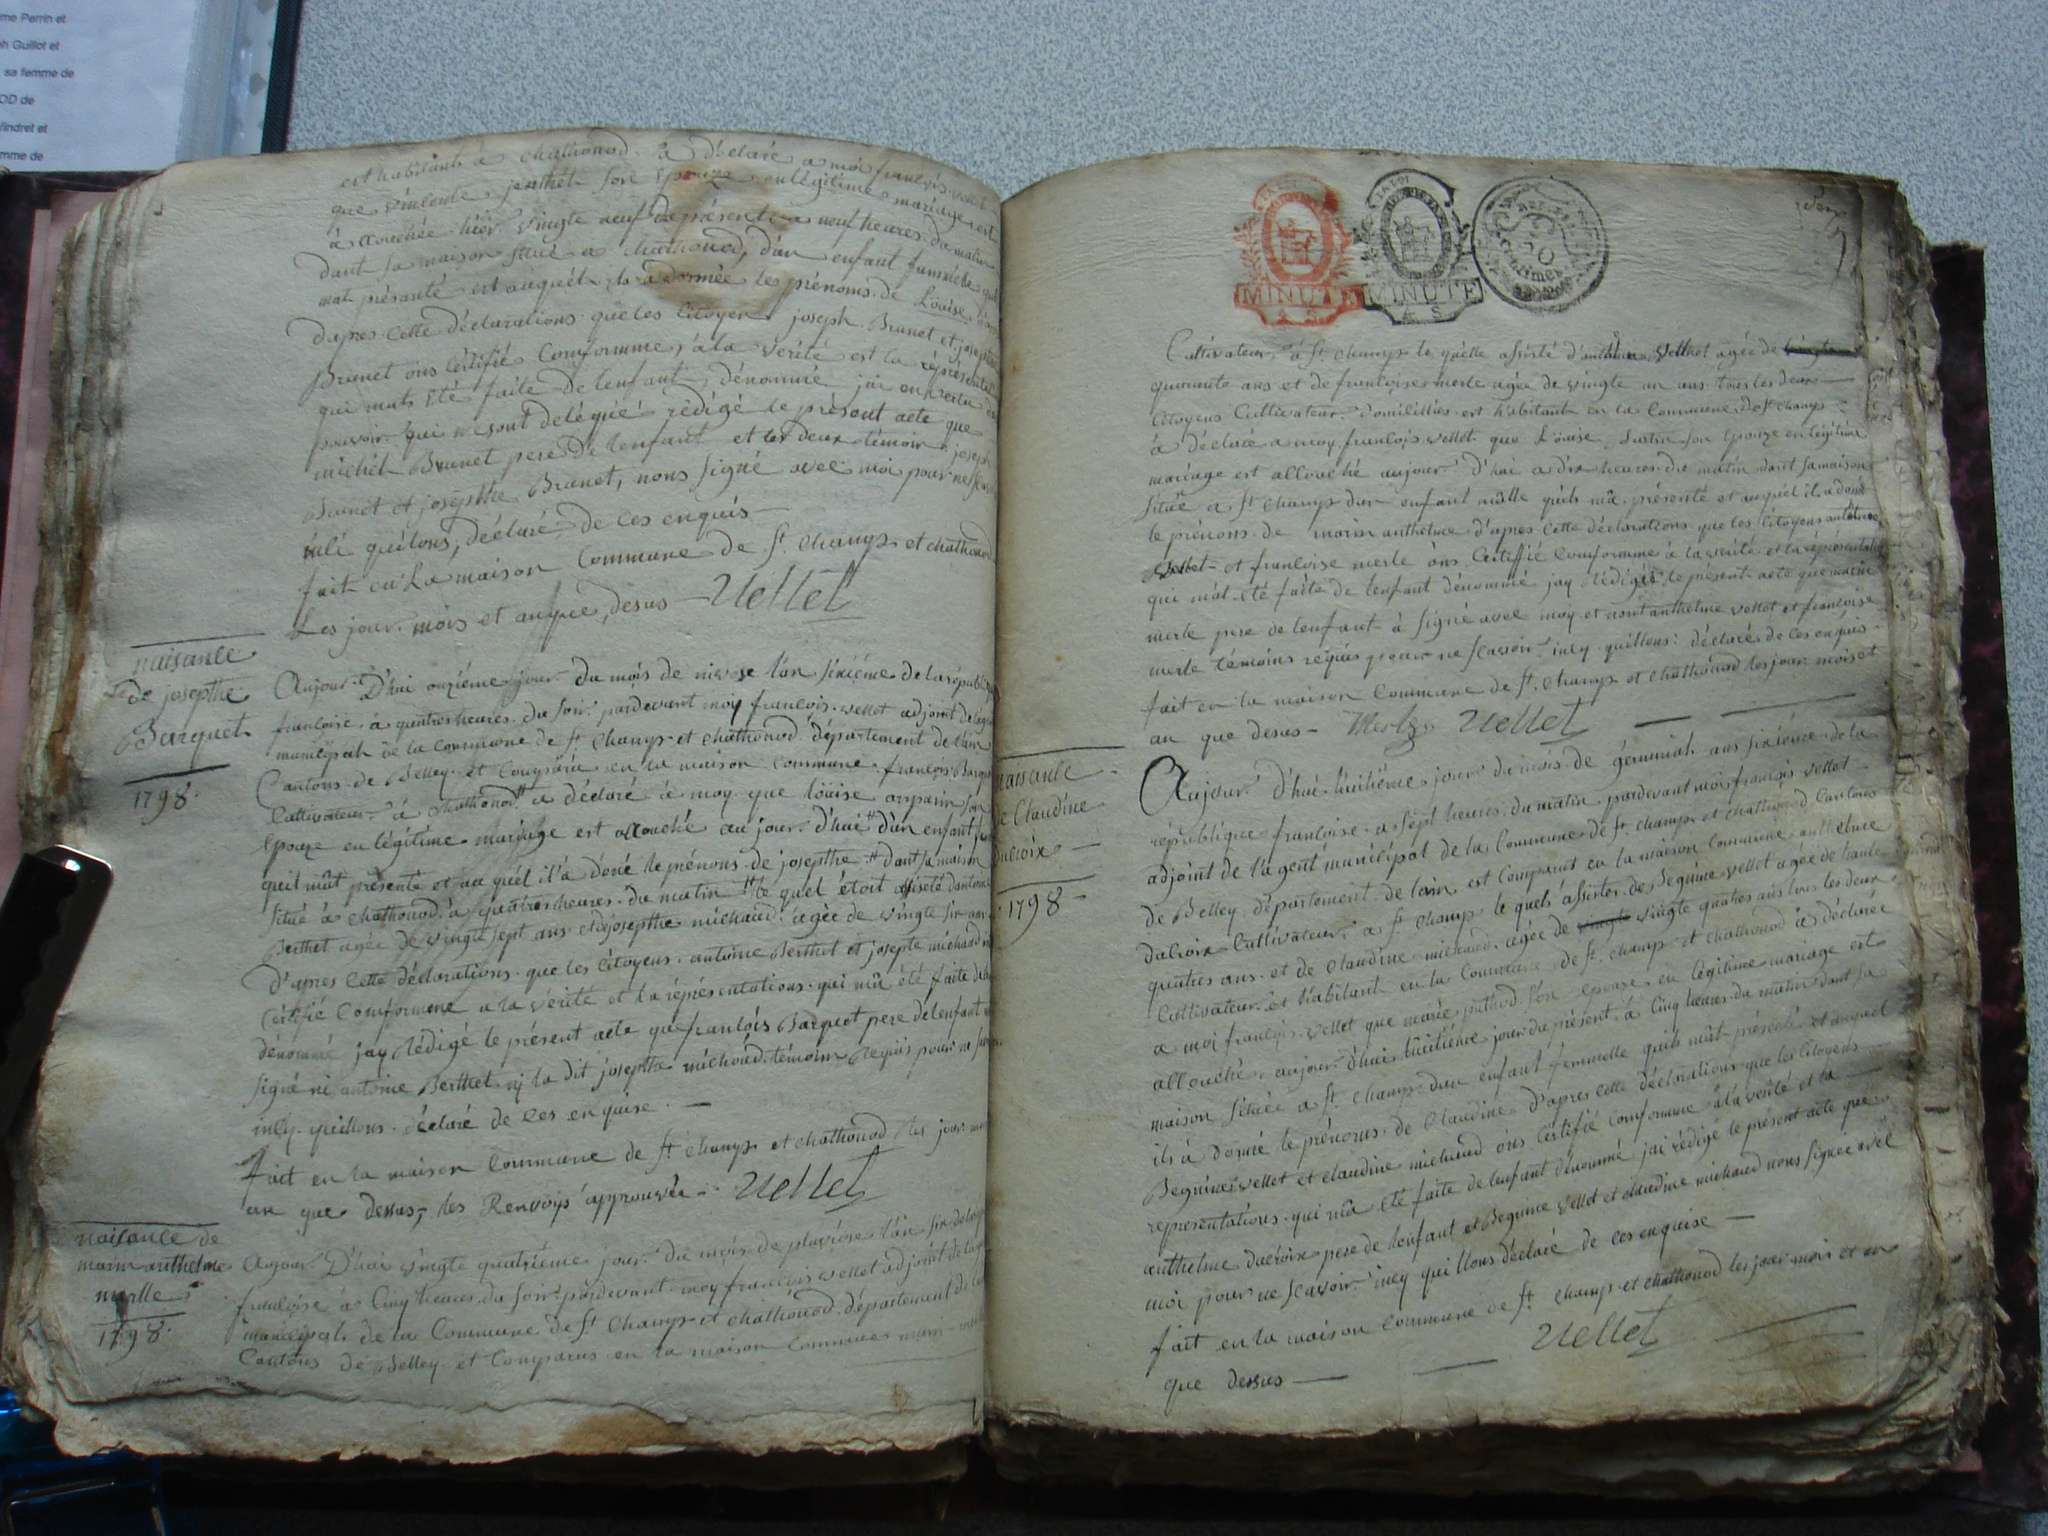 me Perrin et
h Guillot et
sa femme de
OD de
Vindret et
mme de
est habitants à chathonod à déclaré a moi françois vellet
que vincente jenthet son Epouze en légitime mariage est
à llouchée hier vingte neuf du présent à neuf heures du matin
dant sa maison situé a chathonod, d'un enfant fummelle quil
mat présanté est auquél il à donnée les prénoms de Loüise
d'apres cette déclarations que les Citoyen joseph Brunet et josepthe
Brunet ons Certifié Comformme à la verité est la réprésentation
qui mats Eté faite de l'enfant dénommé jai en vertu des
pouvoir qui me sont délégué rédigé le présent acte que
michel Brunet pere de l'enfant et les deux témoin joseph
Brunet et josepthe Brunet, nons signé avec moi pour ne
quéilons, déclaré de ces enquis
fait en la maison Commune de st. champs et chathonod
Les jour mois et année desus Vellet
naisance
de josepthe
Barquet
1798
Aujour D'hui onzième jour du mois de nivose l'an sixiéme de la républi
françoise à quatres heures du soir pardevant moy françois vellet adjoint de l'agen
munésipal de la Commune de st. Champs et Chathonod département de l'ain
Cantons de Belley est Comparu en la maison Commune françois Barquet
Cultivateur à chathonod a déclaré à moy que loüise arparin son
Epouze en légitime mariage est allouché au jour d'hui d'un enfant
quil mât présenté et au quél il à doné le prénons de josepthe dant sa maison
situé à chathonod à quatres heures du matin le quel étoit assisté d'antoine
Berthet agée de vingte sept ans et de josepthe michaud agée de vingte six ans
D'apres Cette déclarations que les Citoyens antoine Berthet et josepte michaud
Certifié Comformme a la vérité et la réprésentations qui mâ été faite de
dénommé jay Rédigé le présent acte que françois Barquet pere de lenfant
signé ni antoine Berthet ni la dit josepthe michaud témoins Réquis pour ne
incy quillons déclaré de ces enquise
fait en la maison Commune de st champs et chathonod les jour mois
an que dessus les Renvoys approuvée Vellet
naisance de
marin anthelme
merlle
1798
Aujour D'hui vingte quatriéme jour du mois de pluviose l'an six de la
françoise à Cinq heures du soir pardevant moy françois vellet adjoint de
munésipal de la Commune de st Champs et chathonod département de
Cantons de Belley est Comparus en la maison Commune
MINUTE
A. S.
MINUTE
A. S.
50
centimes
Cultivateur à st. champs le quelle assisté d'anthelme vellet agée de
quarante ans et de françoise merle agée de vingte un ans tous les deux
Citoyens Cultivateur domiciliés est habitant en la Commune de st champs
à déclaré a moy françois vellet que Loüise son Epouze en légitime
mariage est allouché aujour d'hui a dix heures du matin dant sa maison
située a st champs dun enfant mâlle quils mâ présenté et auquél il a doné
le prénons de marin anthelme d'apres cette déclarations que les Citoyens anthelme
vellet et françoise merle ons Certiffié Comformme à la verité et la réprésentation
qui mat été faite de l'enfant dénommé jay Rédigée le présent acte que marin
merle pere de lenfant à signé avec moy et nont anthelme vellet et françoise
merle témoins réquis pour ne scavoir incy quillons déclaré de ces enquis
fait en la maison Commune de st. champs et chathonod les jour mois et
an que desus Merle Vellet
naisance
de Claudine
Ducroix
1798
Aujour d'hui huitiéme jour du mois de germinal ans sixiéme de la
république françoise a sept heures du matin pardevant moi françois vellet
adjoint de l'agent municipal de la Commune de st. champs et chathonod Cantons
de Belley département de lain est Comparut en la maison Commune anthelme
ducroix Cultivateur a st champ le quels assisté de Beguine vellet agée de trante
quatres ans et de Claudine michaud agée de vingte vingte quatres ans tous les deux
Cultivateur et habitant en la Commune de st. champ et chathonod à déclarée
a moi françois vellet que marie puthod son epouze en légitime mariage est
allouché aujour d'hui huitiéme jour du présent à Cinq heures du matin dant sa
maison située a st. champ dun enfant femmelle quils mât présenté et auquel
ils à donné le prénoms de Claudine d'apres cette déclarations que les Citoyens
Beguine vellet et claudine michaud ons Certifié comformme à la vérité et la
représentations qui mâ été faite de l'enfant dénommé jai rédigé le présent acte que
anthelme ducroix pere de lenfant et Beguine vellet et claudine michaud nons signée avec
moi pour ne scavoir incy quillons déclaré de ces enquise
fait en la maison commune de st champ et chathonod les jour mois et an
que dessus Vellet